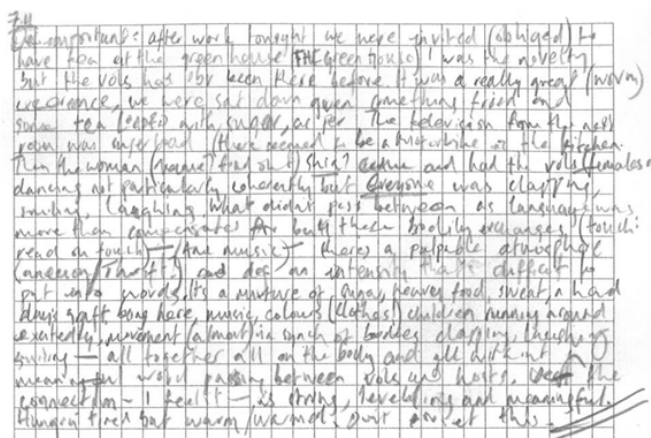 7.11
important: after work tonight we were invited (obliged) to
have tea at the greenhouse (THE green house) I was the novelty
but the vols has been there before. It was a really great (warm)
experience, we were sat down given something fried and
some tea loaded with sugar, as per the television from the next
room was (there seemed to be a in the kitchen.
Then the woman (name? find out) came and had the vols (females
dancing not particularly coherently but Everyone was clapping,
smiling, laughing. What didn't pass between as language was
more than compensated for by these bodily exchanges (touch:
read on touch) — (And music) — there's a palpable atmosphere
(Anderson/Thrift.) and an intensity that's difficult to
put into words. Its a mixture of sugar, heavy food, sweat, a hard
days graft being here, music, colours (clothes!) children running around
excitedly, movement (almost) in synch of bodies clapping, laughing
smiling — all together all on the body and all without a
meaningful word passing between vols and hosts. the
connection — I feel it — is strong, levelling and meaningful.
Hungry tired but warm/warmed. Don't forget this.